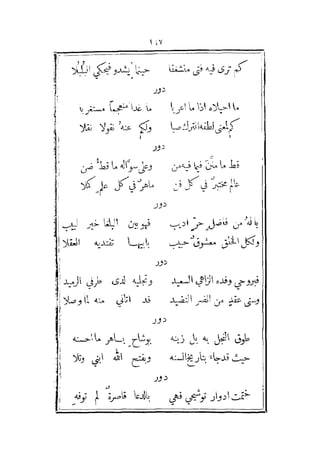 ١٤٧
كم ترى فيه فتى منشغفا حينما يشدو فيحكي البلبلا
دور
ما احيلاه اذا ما اعربا ما غدا منعجماً مستغربه
كم لمعنى لطفه انترك صبا ولكم عنه نقولا نقلا
دور
قط ما منّ فيما فيه من وعلى سواله ما قط ضن
عالم مختبر في كل فن ماهر في كل علم كملا
دور
ياله من فاضل حر اديب فهو بين البلغا خير لبيب
ولكل الخلق معشوق حبيب بابيهــا تفتديه العقلا
دور
فبروحي وفده الزاهي السعيد وتجليه لدى طرفي الرميد
وسنى عقد من الفسر النضيد قد اتاني منه لما وصلا
دور
طوق النحل به بل زينه بوشاح بــاهر ما احسنه
حيث قد جاء بتاريخ السنه وبفتح الله ابني وتلا
دور
ختمت ادوار توشيحي فهي بالدعا قاصرة لم توفه